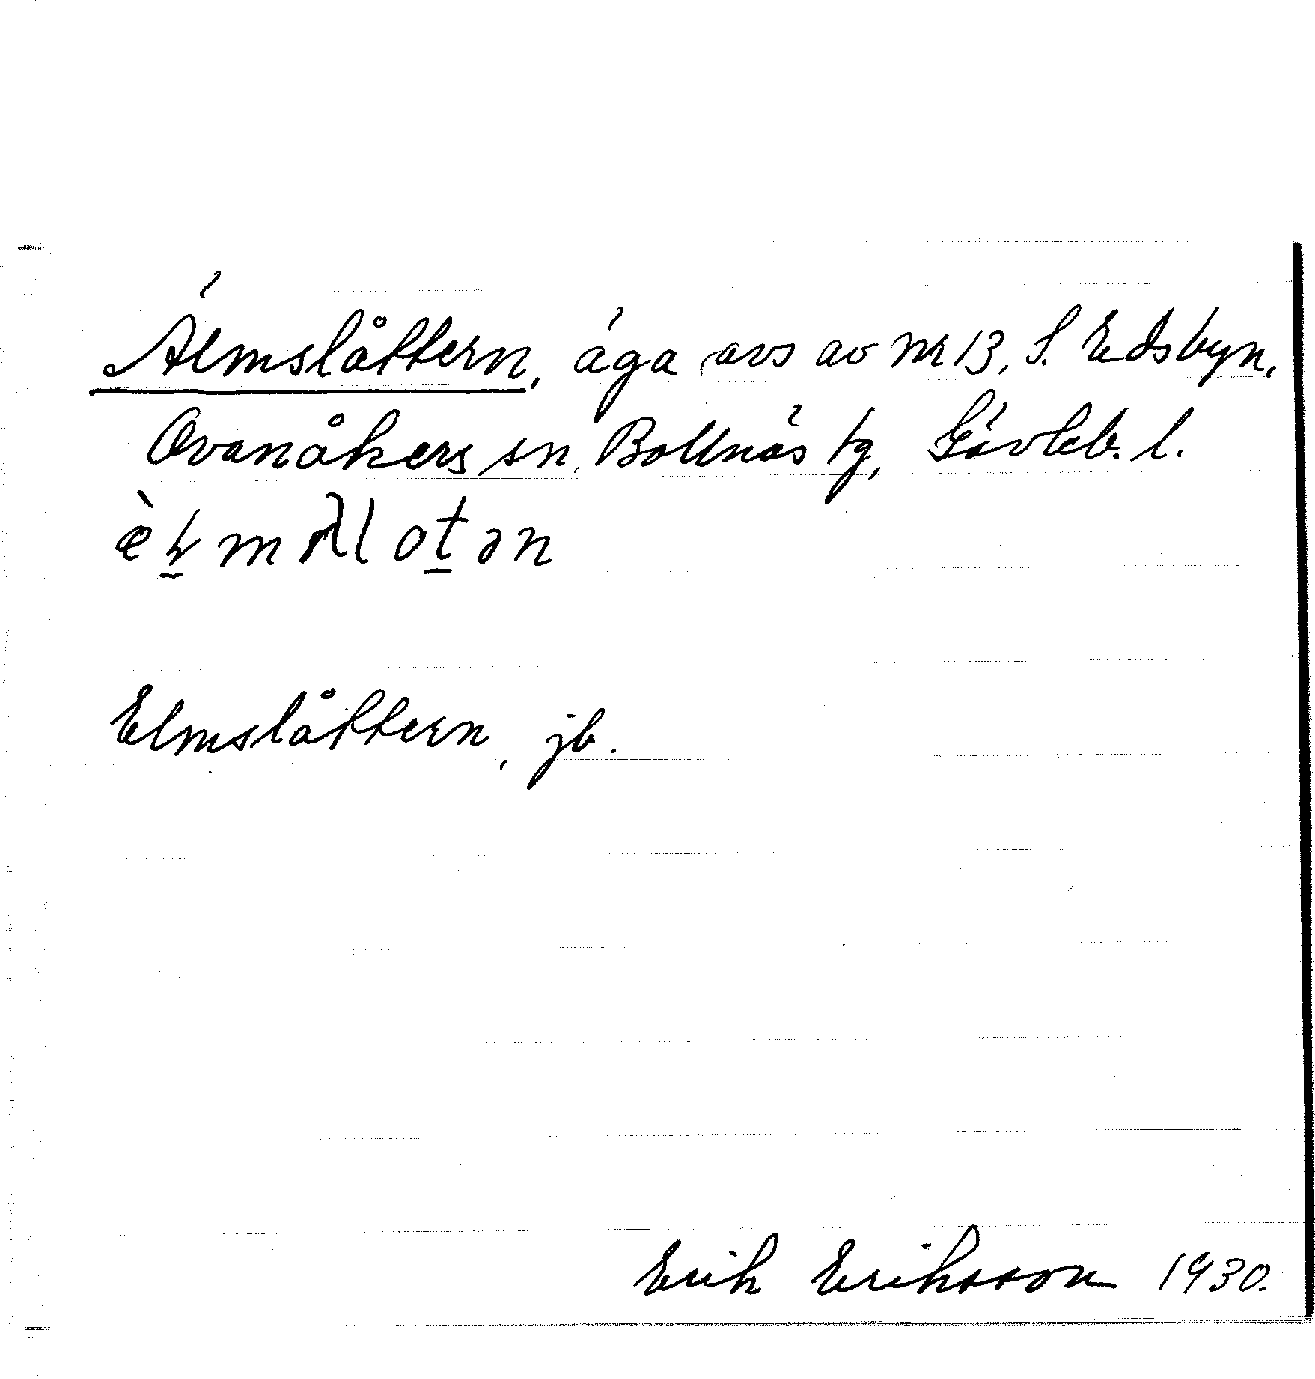 Älmslåttern, äga avs av nr 13, S. Edsbyn,
Ovanåkers sn, Bollnäs tg, Gävleb. l.
Elmslåttern, jb.
Erik Eriksson 1930.